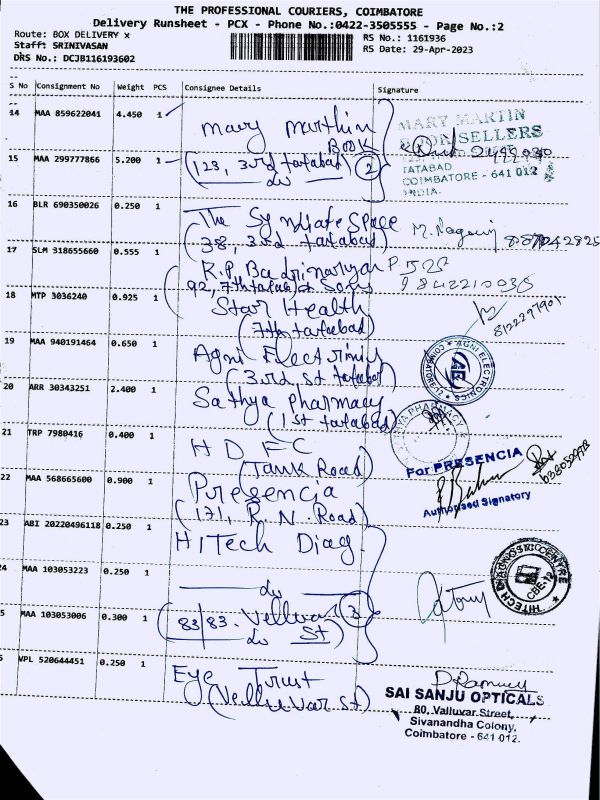 THE PROFESSIONAL COURIERS, COIMBATORE
Delivery Runsheet - PCX - Phone No.:0422-3505555 - Page No.:2
Route: BOX DELIVERY x
Staff: SRINIVASAN
DRS No.: DCJB116193602
RS No.: 1161936
RS Date: 29-Apr-2023
S No Consignment No Weight PCS Consignee Details Signature
14 MAA 859622041 4.450 1
Mary Marthin
BOOK
MARY MARTIN
BOOK SELLERS
TATABAD
COIMBATORE - 641 012
INDIA.
15 MAA 299777866 5.200 1
(123, 3rd tatabad) 2
do
16 BLR 690350026 0.250 1
The Syndicate Space
(38, 3rd tatabad)
17 SLM 318655660 0.555 1
R.P. Badrinarayan
92, 7th tatabad Sons
9842210035
18 MTP 3036240 0.925 1
Star Health
(7th tatabad)
8122297901
19 MAA 940191464 0.650 1
Agni Electronics
(3rd St tatabad)
AGNI ELECTRONICS
COIMBATORE
AE
20 ARR 30343251 2.400 1
Sathya Pharmacy
(1st tatabad)
PHARMACY
21 TRP 7980416 0.400 1
HDFC
(Tank Road)
22 MAA 568665600 0.900 1
Presencia
(171, R.N. Road)
For PRESENCIA
Authorised Signatory
23 ABI 20220496118 0.250 1
HiTech Diag.
HITECH DIAGNOSTIC CENTRE
CBE-12
24 MAA 103053223 0.250 1
do
(83/83. Velluvar 3
do St)
5 MAA 103053006 0.300 1
VPL 520644451 0.250 1
Eye Trust
(Velluvar St)
SAI SANJU OPTICALS
80, Valluvar Street,
Sivanandha Colony,
Coimbatore - 641 012.